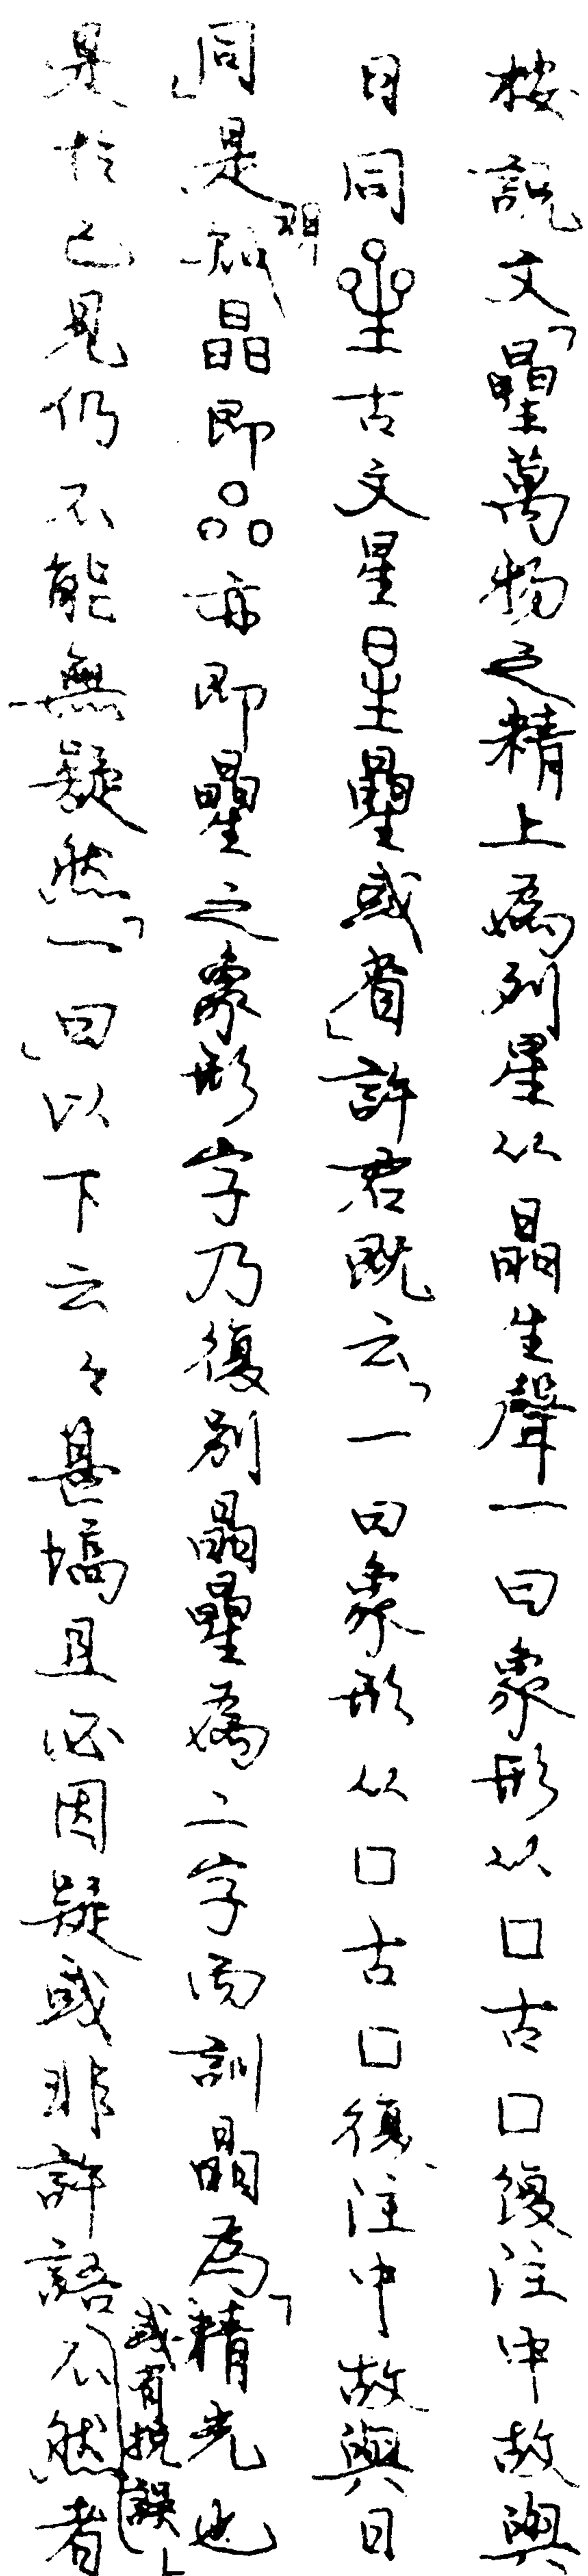 按說文「曐萬物之精上為列星从晶生聲一曰象形从口古口復注中故與
日同𠻖古文星星曐或省」許君既云「一曰象形从口古口復注中故與日
同」是知明晶即品亦即曐之象形字乃復別晶曐為二字而訓晶為「精光也
是於已見仍不能無疑然「一曰」以下云々甚塙且必因疑或非許語不然者
或有挩誤